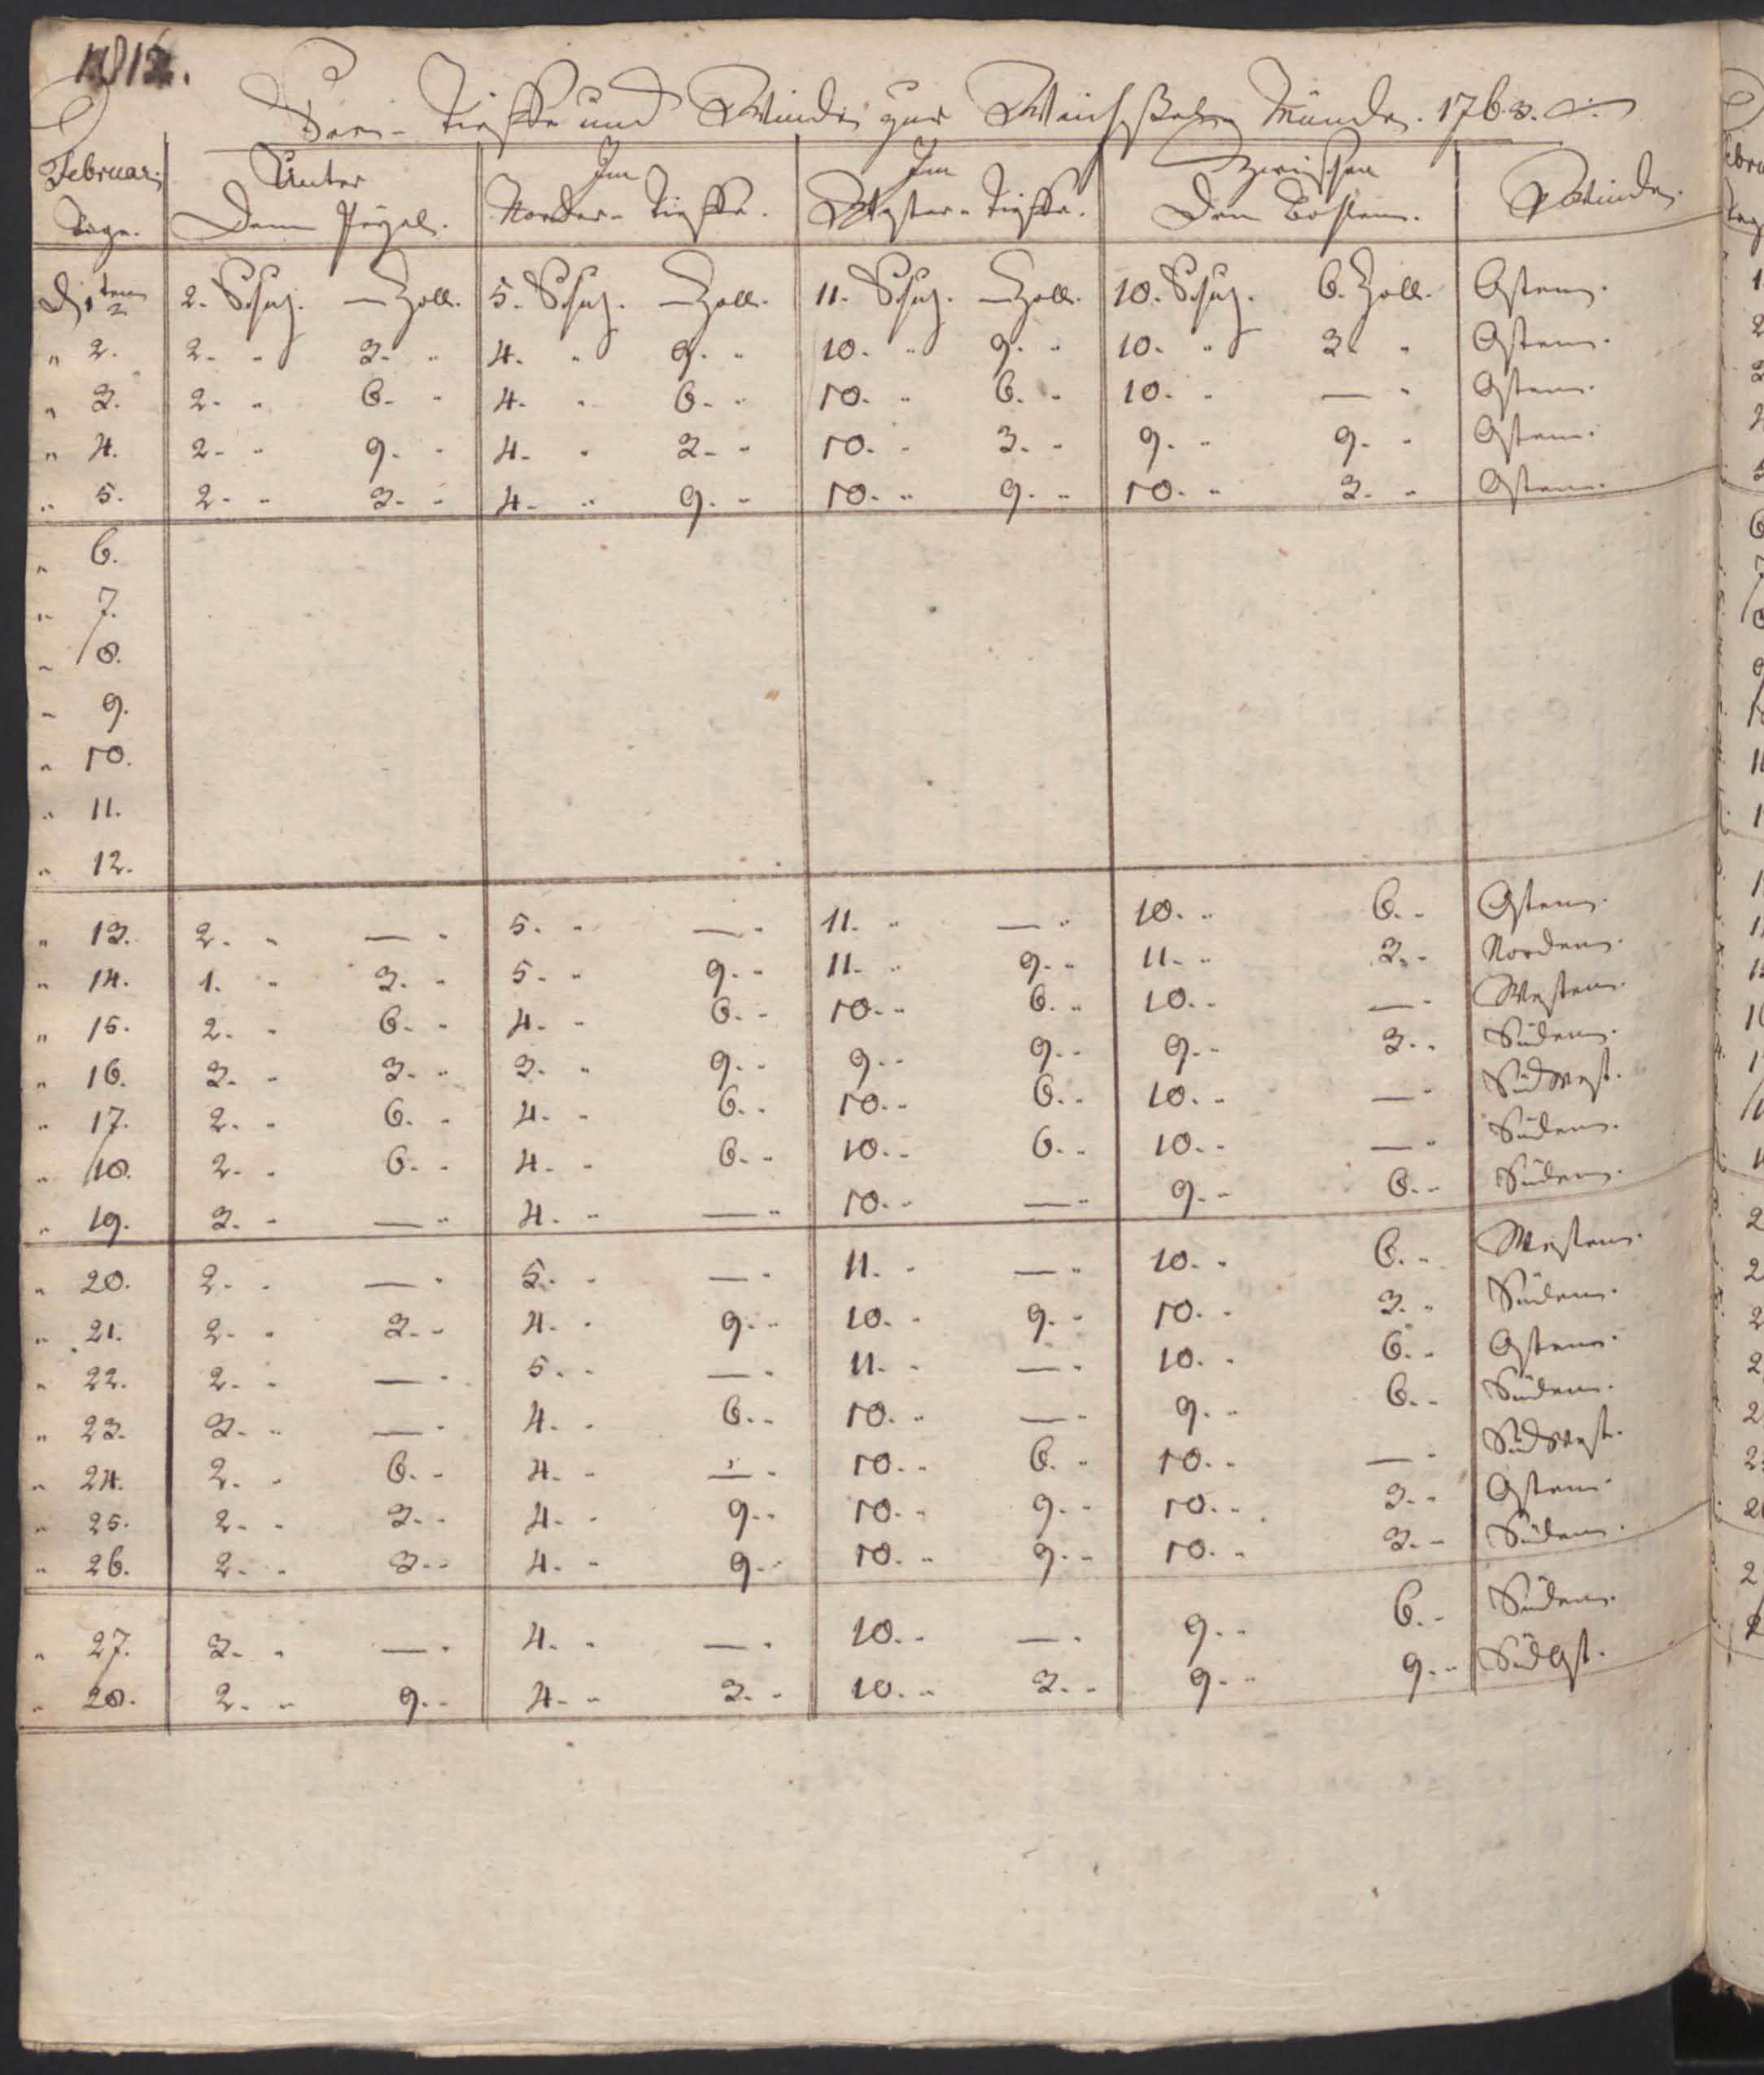 Tieffe und Winde zur Münde. 1763.
Februar: Unter Im Im Zwischen Winde.
Tage. Dem Pegel. Norder-Tieffe. Wester-Tieffe. Den
D 1ten 2. Schuh. — Zoll. 5. Schuh. — Zoll. 11. Schuh. — Zoll. 10. Schuh. 6. Zoll. Osten.
" 2. 2. " 3. " 4. " 9. " 10. " 9. " 10. " 3. " Osten.
" 3. 2. " 6. " 4. " 6. " 10. " 6. " 10. " — " Osten.
" 4. 2. " 9. " 4. " 3. " 10. " 3. " 9. " 9. " Osten.
" 5. 2. " 3. " 4. " 9. " 10. " 9. " 10. " 3. " Osten.
" 6.
" 7.
" 8.
" 9.
" 10.
" 11.
" 12.
" 13. 2. " — " 5. " — " 11. " — " 10. " 6. " Osten.
" 14. 1. " 3. " 5. " 9. " 11. " 9. " 11. " 3. " Norden.
" 15. 2. " 6. " 4. " 6. " 10. " 6. " 10. " — " Westen.
" 16. 3. " 3. " 3. " 9. " 9. " 9. " 9. " 3. " Süden.
" 17. 2. " 6. " 4. " 6. " 10. " 6. " 10. " — " Südwest.
" 18. 2. " 6. " 4. " 6. " 10. " 6. " 10. " — " Süden.
" 19. 3. " — " 4. " — " 10. " — " 9. " 6. " Süden.
" 20. 2. " — " 5. " — " 11. " — " 10. " 6. " Westen.
" 21. 2. " 3. " 4. " 9. " 10. " 9. " 10. " 3. " Süden.
" 22. 2. " — " 5. " — " 11. " — " 10. " 6. " Osten.
" 23. 3. " — " 4. " 6. " 10. " — " 9. " 6. " Süden.
" 24. 2. " 6. " 4. " — " 10. " 6. " 10. " — " Südwest.
" 25. 2. " 3. " 4. " 9. " 10. " 9. " 10. " 3. " Osten.
" 26. 2. " 3. " 4. " 9. " 10. " 9. " 10. " 3. " Süden.
" 27. 3. " — " 4. " — " 10. " — " 9. " 6. " Süden.
" 28. 2. " 9. " 4. " 3. " 10. " 3. " 9. " 9. " SüdOst.